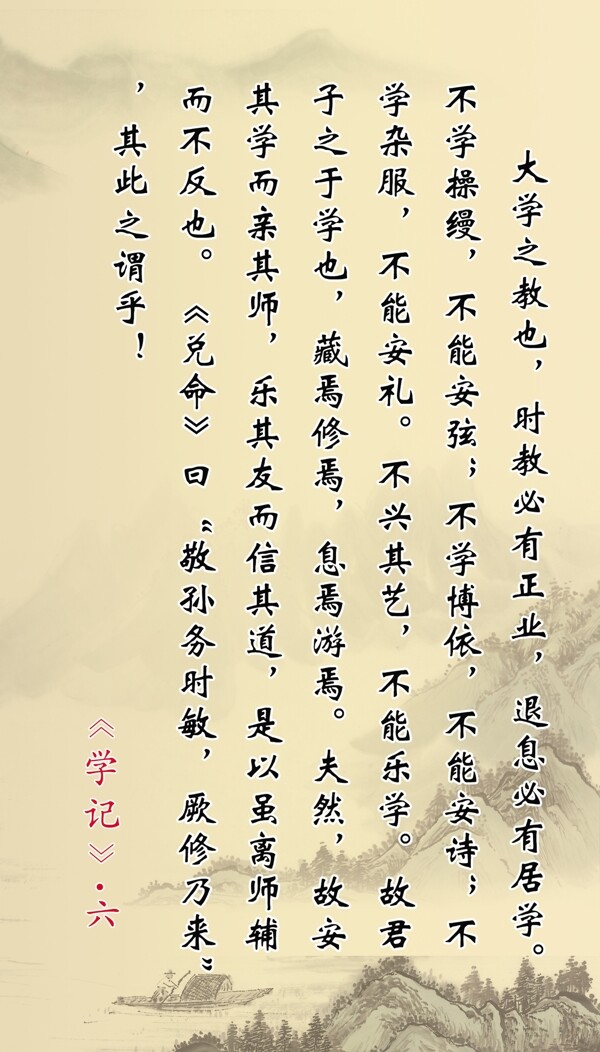 大学之教也，时教必有正业，退息必有居学。
不学操缦，不能安弦；不学博依，不能安诗；不
学杂服，不能安礼。不兴其艺，不能乐学。故君
子之于学也，藏焉修焉，息焉游焉。夫然，故安
其学而亲其师，乐其友而信其道，是以虽离师辅
而不反也。《兑命》曰“敬孙务时敏，厥修乃来”
，其此之谓乎！
《学记》·六